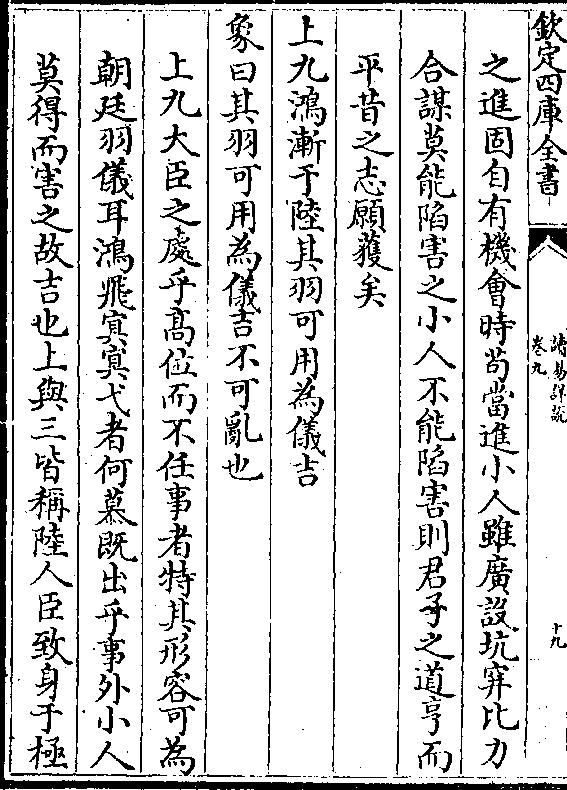 欽定四庫全書
讀易詳說
卷九
十九
之進固自有機會時茍當進小人雖廣設坑穽比力
合謀莫能陷害之小人不能陷害則君子之道亨而
平昔之志願獲矣
上九鴻漸于陸其羽可用為儀吉
象曰其羽可用為儀吉不可亂也
上九大臣之處乎髙位而不任事者特其形容可為
朝廷羽儀耳鴻飛㝠㝠弋者何慕既出乎事外小人
莫得而害之故吉也上與三皆稱陸人臣致身于極